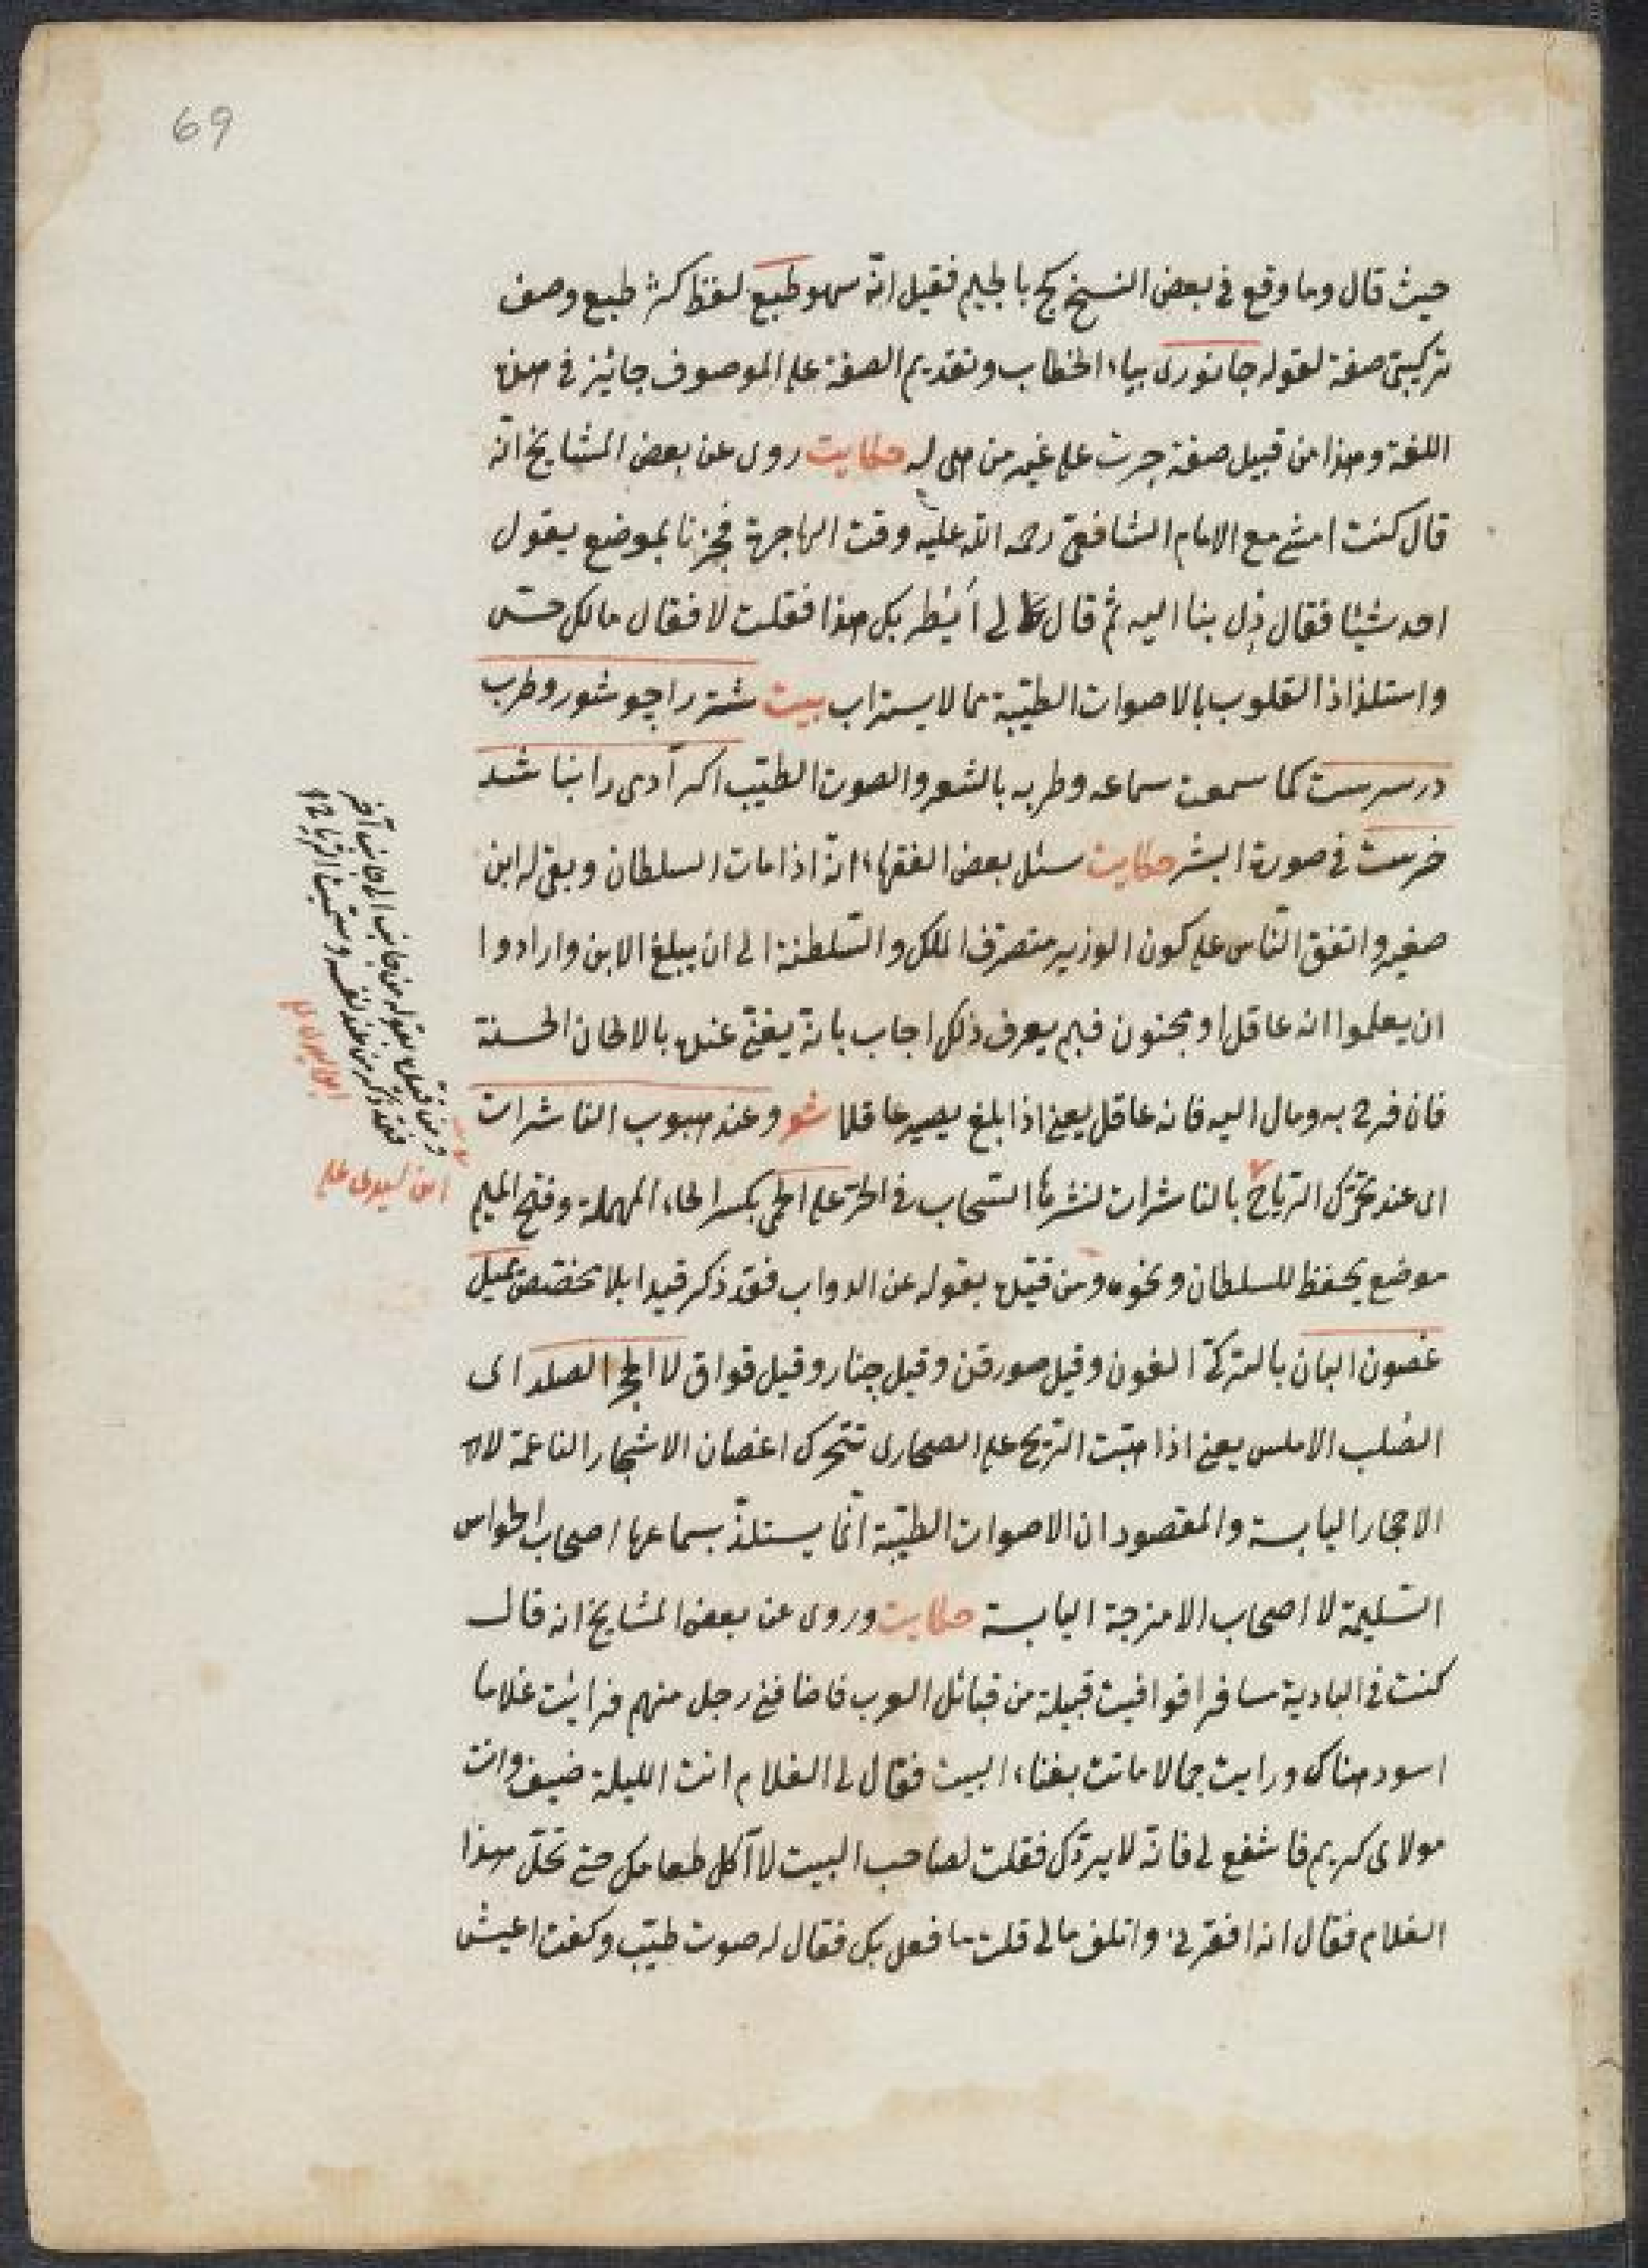 69
حيث قال وما وقع فى بعض النسخ كج بالجيم فقيل انه سهو طبع لفظ كژ طبع وصف
تركيبى صفة لقوله جانورى بياء الخطاب وتقديم الصفة على الموصوف جائز فى هذه
اللغة وهذا من قبيل صفة جرت على غير من هى له حكايت روى عن بعض المشايخ انه
قال كنت امشى مع الامام الشافعى رحمة الله عليه وقت الهاجرة فجزنا بموضع يقول
احد شيئا فقال مِل بنا اليه ثم قال لى أيُطربك هذا فقلت لا فقال مالك حس
واستلذاذ القلوب بالاصوات الطيبة مما لا يستراب بيت شتر را چو شور وطرب
در سرست كما سمعت سماعه وطربه بالشعر والصوت الطيب اكر آدمى را نباشد
خرست فى صورة البشر حكايت سئل بعض الفقهاء انه اذا مات السلطان وبقى له ابن
صغير واتفق الناس على كون الوزير متصرف الملك والسلطنة الى ان يبلغ الابن وارادوا
ان يعلموا انه عاقل او مجنون فبم يعرف ذلك اجاب بانه يغنى عنده بالالحان الحسنة
فان فرح به ومال اليه فانه عاقل يعنى اذا بلغ يصير عاقلا شعر وعند هبوب الناشرات
اى عند تحرّك الرياح بالناشرات لنشرها السحاب فى الجو على الحمى بكسر الحاء المهملة وفتح الميم
موضع يحفظ للسلطان ونحوه ومن قيده بقوله عن الدواب فقد ذكر قيدا بلا مخصص تميل
غصون البان بالتركى الغون وقيل صورقن وقيل چنار وقيل قواق لا الحجر الصلد اى
الصلب الاملس يعنى اذا هبّت الريح على الصحارى تتحرك اغصان الاشجار الناعمة لا
الاحجار اليابسة والمقصود ان الاصوات الطيبة انما يستلذّ بسماعها اصحاب الحواس
السليمة لا اصحاب الامزجة اليابسة حكايت وروى عن بعض المشايخ انه قال
كنت فى البادية مسافرا فوافيت قبيلة من قبائل العرب فاضافنى رجل منهم فرايت غلاما
اسود هناك ورايت جمالا ماتت بفناء البيت فقال لى الغلام انت الليلة ضيف وانت
مولاى كريم فاشفع لى فانه لا يردّك فقلت لصاحب البيت لا آكل طعامك حتى تحلّ هذا
الغلام فقال انه افقرنى واتلف مالى قلت ما فعل بك فقال له صوت طيّب وكنت اعيش
ابن سيدى على